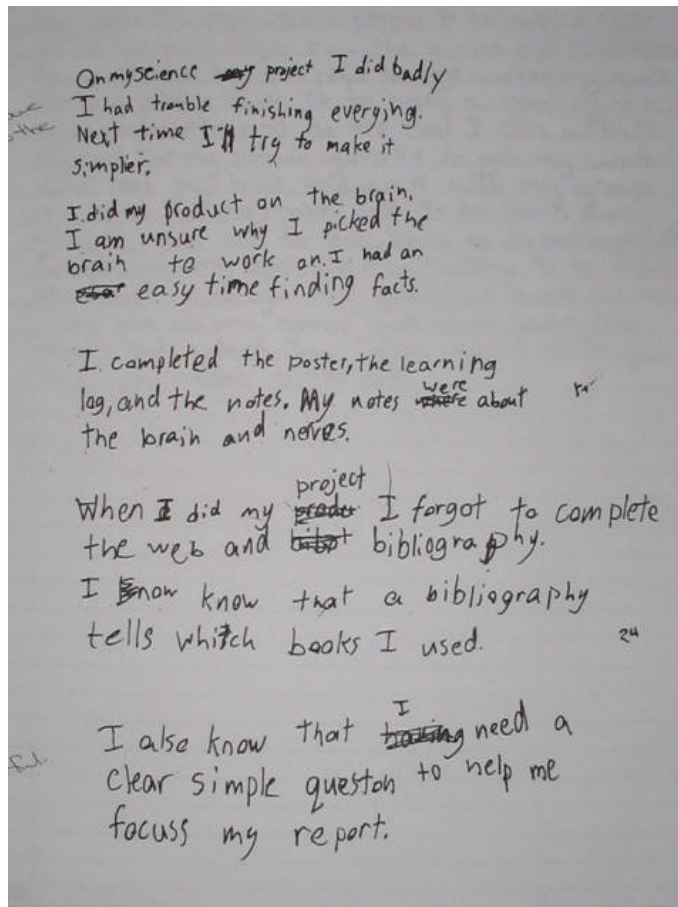 On my science project I did badly
I had trouble finishing everying.
Next time I'll try to make it
simplier.
I did my product on the brain.
I am unsure why I picked the
brain to work on. I had an
easy time finding facts.
I completed the poster, the learning
log, and the notes. My notes were about
the brain and nerves.
When I did my project I forgot to complete
the web and bibliography.
I know know that a bibliography
tells which books I used.
24
I also know that I need a
clear simple queston to help me
focuss my report.